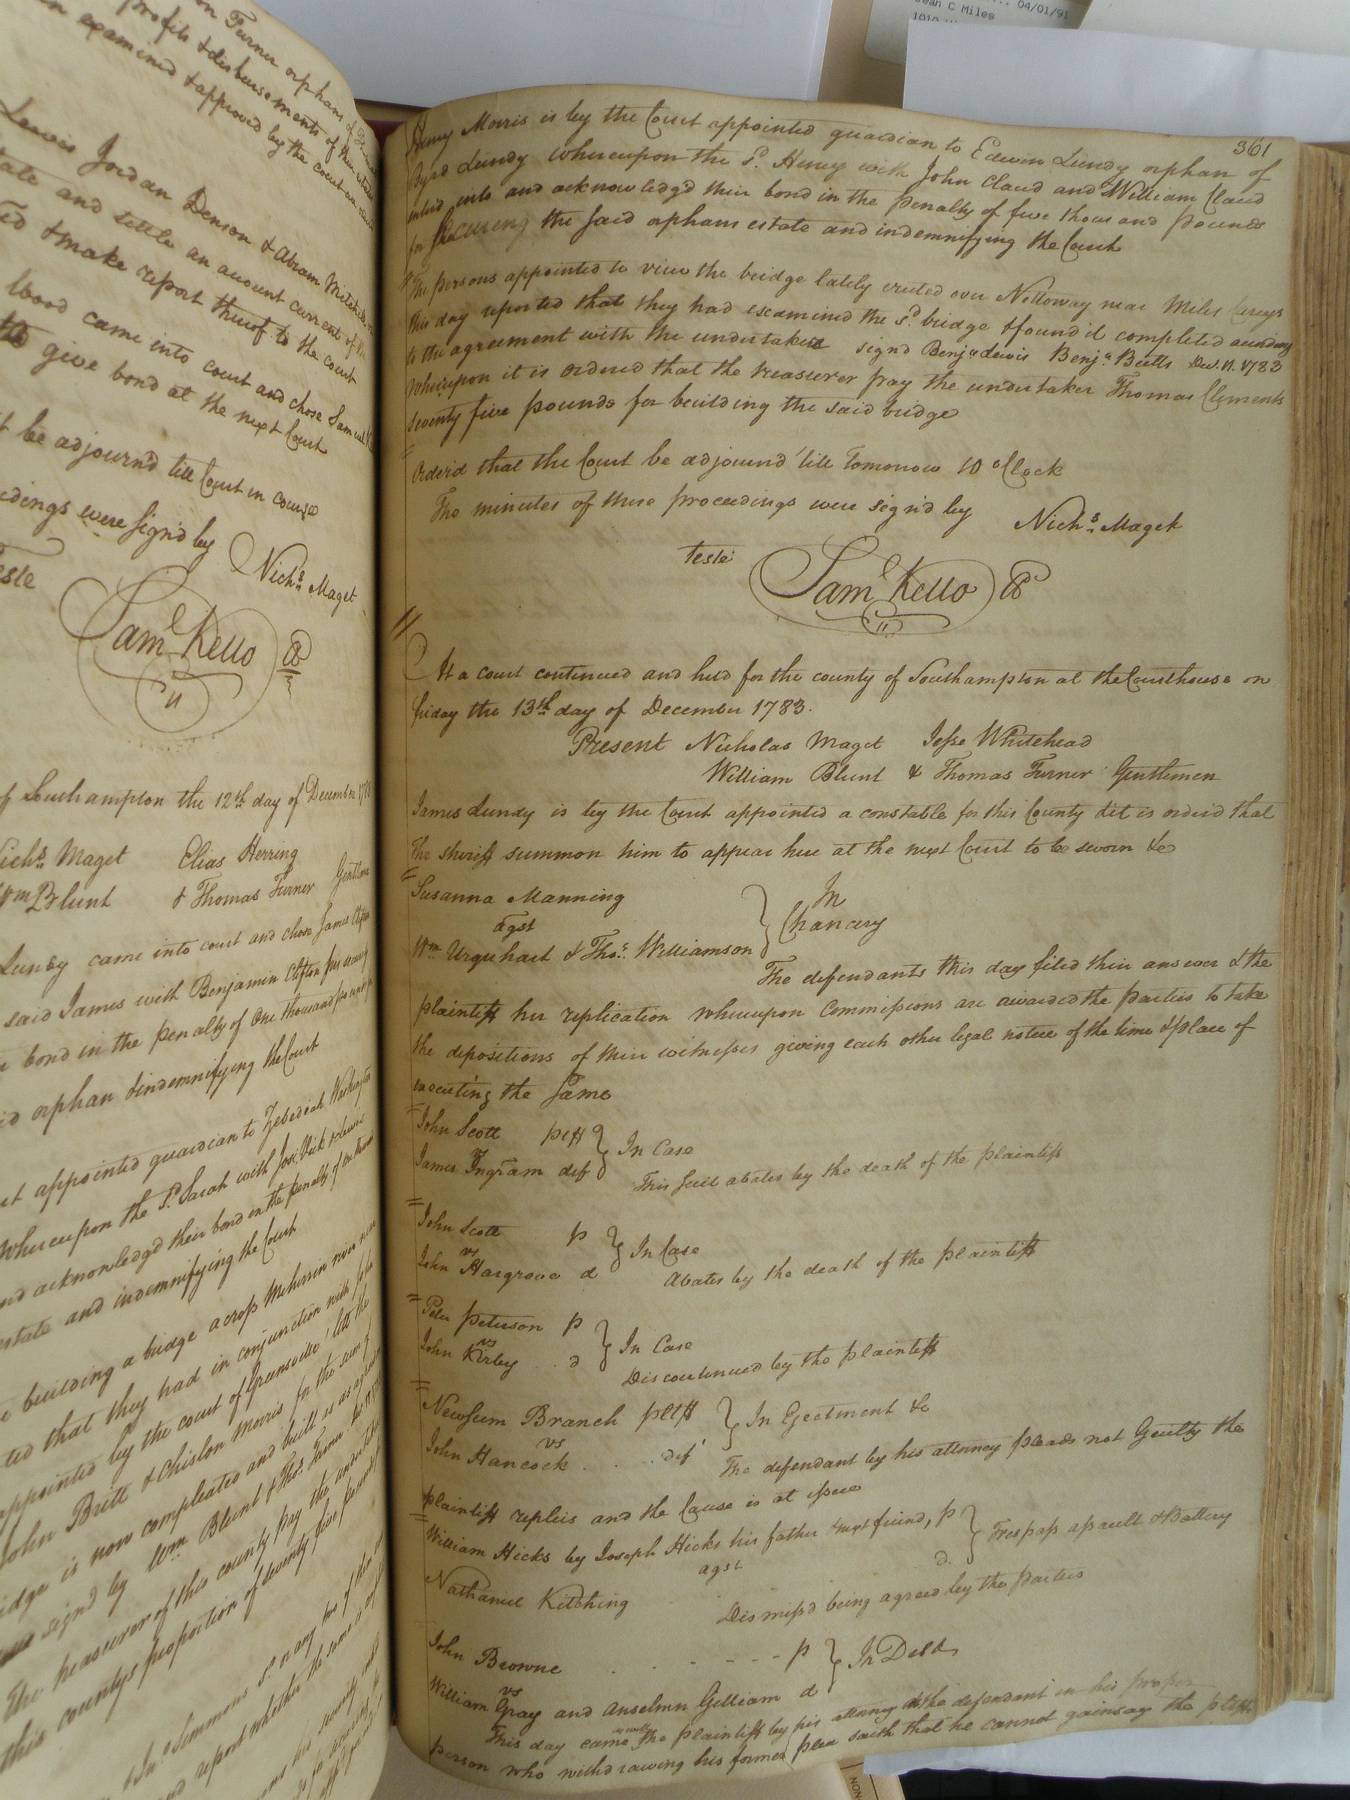 on Turner orphans of
profits & disbursements of their estates
examined & approved by the court and
Lewis Jordan Denson & Abram Mitchell
tate and settle an account current of the
& make report thereof to the court
blood came into court and chose Samuel
to give bond at the next Court
be adjourn'd till Court in course
edings were sign'd by
Nichs. Maget
Teste
Saml. Kello
of Southampton the 12th day of December
Nichs. Maget Elias Herring
Wm Blunt & Thomas Turner Gentlemen
Lundy came into court and chose James Clifton
said James with Benjamin Clifton
bond in the penalty of One thousand
id orphan & indemnifying the Court
appointed guardian to Zebedeah
Whereupon the Sd. Sarah with
and acknowledgd their bond in the penalty of
estate and indemnifying the Court
building a bridge across Meherrin river
ted that they had in conjunction with
appointed by the court of Greensville let the
John Britt & Chislon Morris for the sum of
idge is now compleated and built
signd by Wm. Blunt & Thos. Turner
The treasurer of this county pay the undertaker
this countys proportion of seventy five pounds
Simmons
and report whether the same
361
Henry Morris is by the Court appointed guardian to Edwin Lundy orphan of
Byrd Lundy whereupon the Sd. Henry with John Claud and William Claud
enterd into and acknowledgd their bond in the penalty of five thousand pounds
for securing the said orphans estate and indemnifying the Court
The persons appointed to view the bridge lately erected over Nottoway near Miles Careys
this day reported that they had examined the sd. bridge & found it completed according
to the agreement with the undertaker signd Benja. Lewis Benja. Butts Dec. 11. 1783
Whereupon it is ordered that the treasurer pay the undertaker Thomas Clements
seventy five pounds for building the said bridge
Order'd that the Court be adjournd till Tomorrow 10 oClock
The minutes of these proceedings were sign'd by
Nichs. Maget
Teste
Saml. Kello
At a court continued and held for the county of Southampton at the Courthouse on
friday the 13th day of December 1783.
Present Nicholas Maget Jesse Whitehead
William Blunt & Thomas Turner Gentlemen
James Lundy is by the Court appointed a constable for this County & it is orderd that
The sheriff summon him to appear here at the next Court to be sworn &c
Susanna Manning
agst
Wm Urquhart & Thos. Williamson
In
Chancery
The defendants this day filed their answer & the
plaintiff her replication whereupon Commissions are awarded the parties to take
the depositions of their witnesses giving each other legal notice of the time & place of
executing the same
John Scott pltff
James Ingram def
In Case
This suit abates by the death of the plaintiff
John Scott p
vs
John Hargrove d
In Case
Abates by the death of the plaintiff
Peter Peterson p
vs
John Kirby d
In Case
Discontinued by the plaintiff
Newsum Branch pltff
vs
John Hancock def
In Ejectment &c
The defendant by his attorney pleads not Guilty the
plaintiff replies and the Cause is at issue
William Hicks by Joseph Hicks his father & next friend, p
agst
Nathaniel Kitching d.
Trespass assault & Battery
Dismissd being agreed by the parties
John Browne p
vs
William Gray and Anselmn Gilliam d
In Debt
This day came as well the plaintiff by his attorney as the defendant in his proper
person who withdrawing his former plea saith that he cannot gainsay the pltffs.